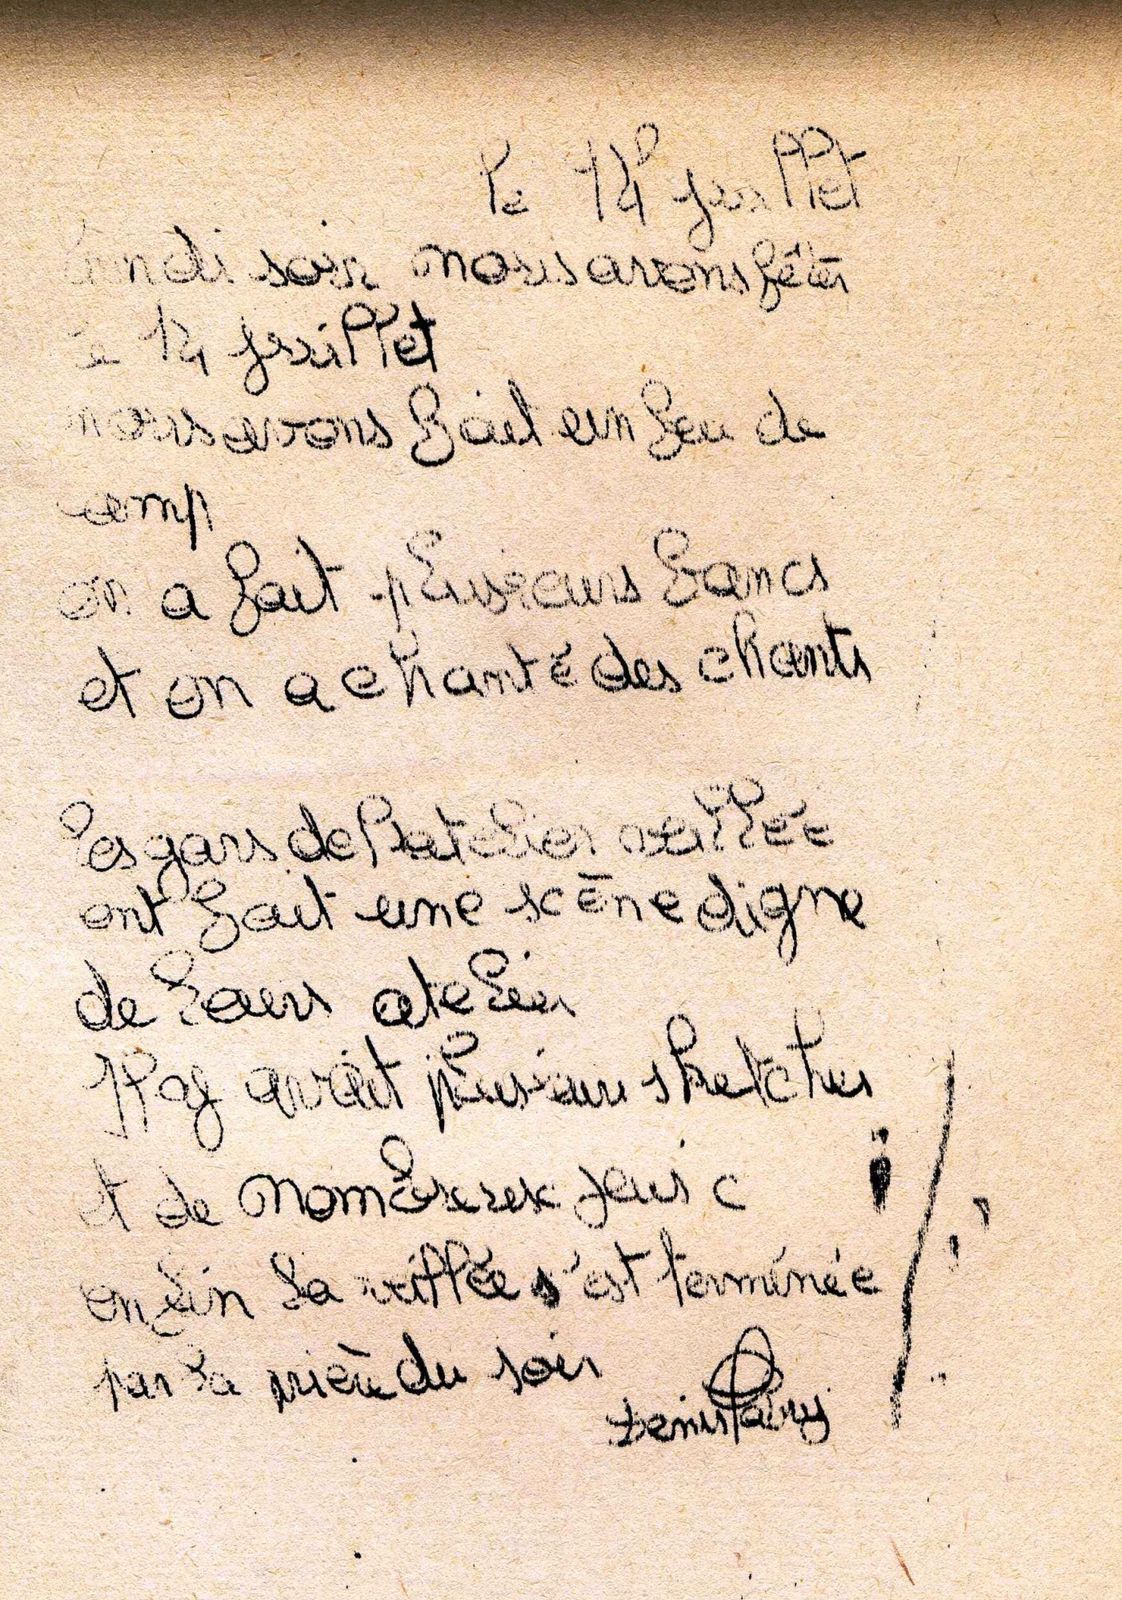 Le 14 juillet
Lundi soir nous avons fêter
le 14 juillet
nous avons fait un feu de
camp
on a fait plusieurs bancs
et on a chanté des chants
Les gars de l'atelier veillée
ont fait une scène digne
de leurs atelier
Il y avait plusieur sketches
et de nombreux jeus
enfin la veillée s'est terminée
par la prière du soir
Denis